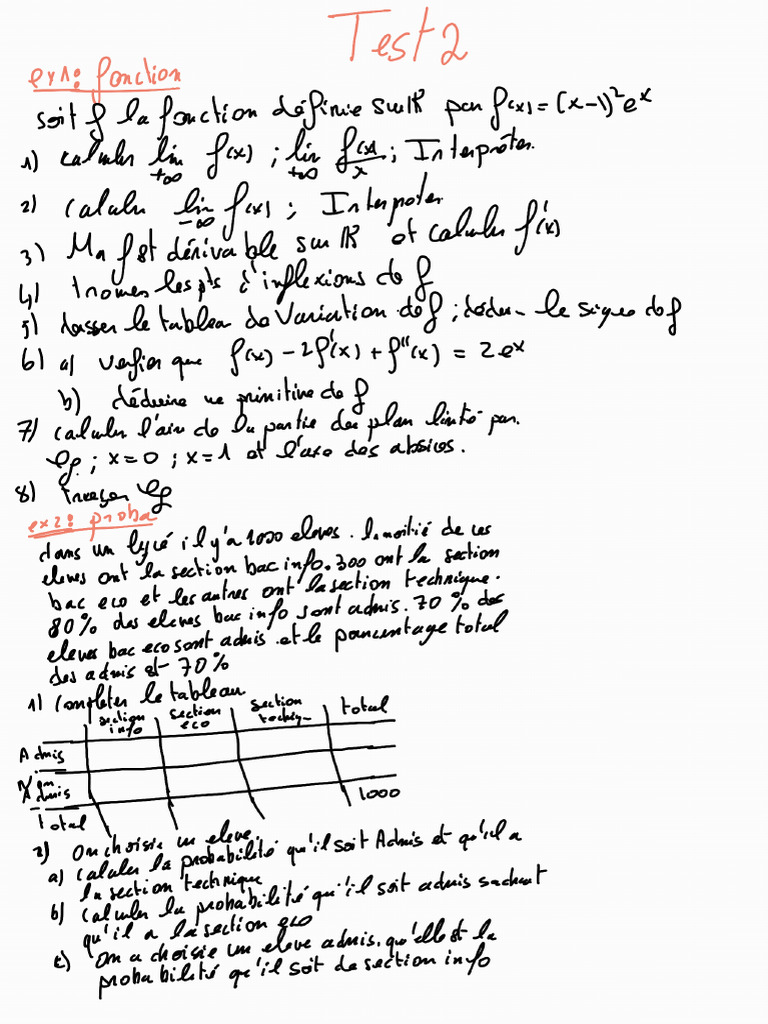 Test 2
ex1: fonction
soit f la fonction définie sur ℝ par f(x) = (x-1)² eˣ
1) calculer lim +∞ f(x) ; lim +∞ f(x)/x ; Interpréter.
2) calculer lim -∞ f(x) ; Interpoter
3) Mq f est dérivable sur ℝ et calculer f'(x)
4) trouver les pts d'inflexions de f
5) dresser le tableau de Variation de f ; dédu- le signe de f
6) a) verfier que f(x) - 2f'(x) + f''(x) = 2eˣ
b) déduire une primitive de f
7) calculer l'aire de la partie du plan limité par.
𝒞f ; x = 0 ; x = 1 et l'axe des absices.
8) traçer 𝒞f
ex2: proba
dans un lycé il y'a 1000 eleves. la moitié de ces
eleves ont la section bac info. 300 ont la section
bac eco et les autres ont la section technique.
80% des eleves bac info sont admis. 70% des
eleves bac eco sont admis. et le pourcentage total
des admis est 70%
1) completer le tableau
section info section eco section techn- total
Admis
Non Admis 1000
Total
2) On choisie un eleve.
a) calculer la probabilité qu'il soit Admis et qu'il a
la section technique
b) calculer la probabilité qu'il soit admis sachant
qu'il a la section eco
c) On a choisie un eleve admis. qu'elle est la
probabilité qu'il soit de section info